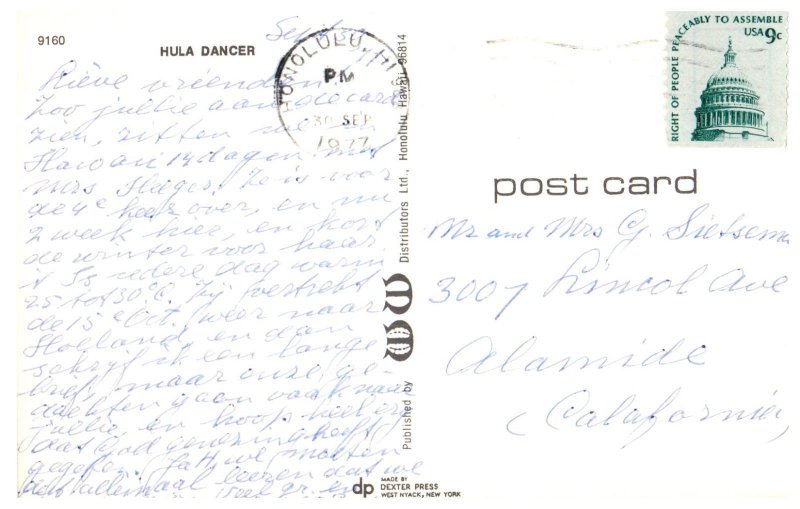 9160
HULA DANCER
Sept
Lieve vrienden
Zoo jullie aan de card
zien, zitten we
Hawaii 14 dagen met
Mrs Sleger. Ze is voor
de 4e keer over, en nu
2 week hier, en kort
de winter voor haar.
Is iedere dag warm
25 tot 30°C. Zij vertrekt
de 15e Oct. weer naar
Holland en dan
schryf ik een lange
brief, maar onze ge-
dachten gaan vaak naar
jullie en hoop heel erg
dat God genezing heeft
gegeven. Ja H, we moeten
allemaal leeren dat we
HONOLULU, HI
PM
30 SEP
1977
Published by
Distributors Ltd., Honolulu, Hawaii 96814
dp
MADE BY
DEXTER PRESS
WEST NYACK, NEW YORK
RIGHT OF PEOPLE PEACEABLY TO ASSEMBLE
USA 9c
post card
Mr and Mrs G. Sietsema
3007 Lincol Ave
Alamide
Calafornia